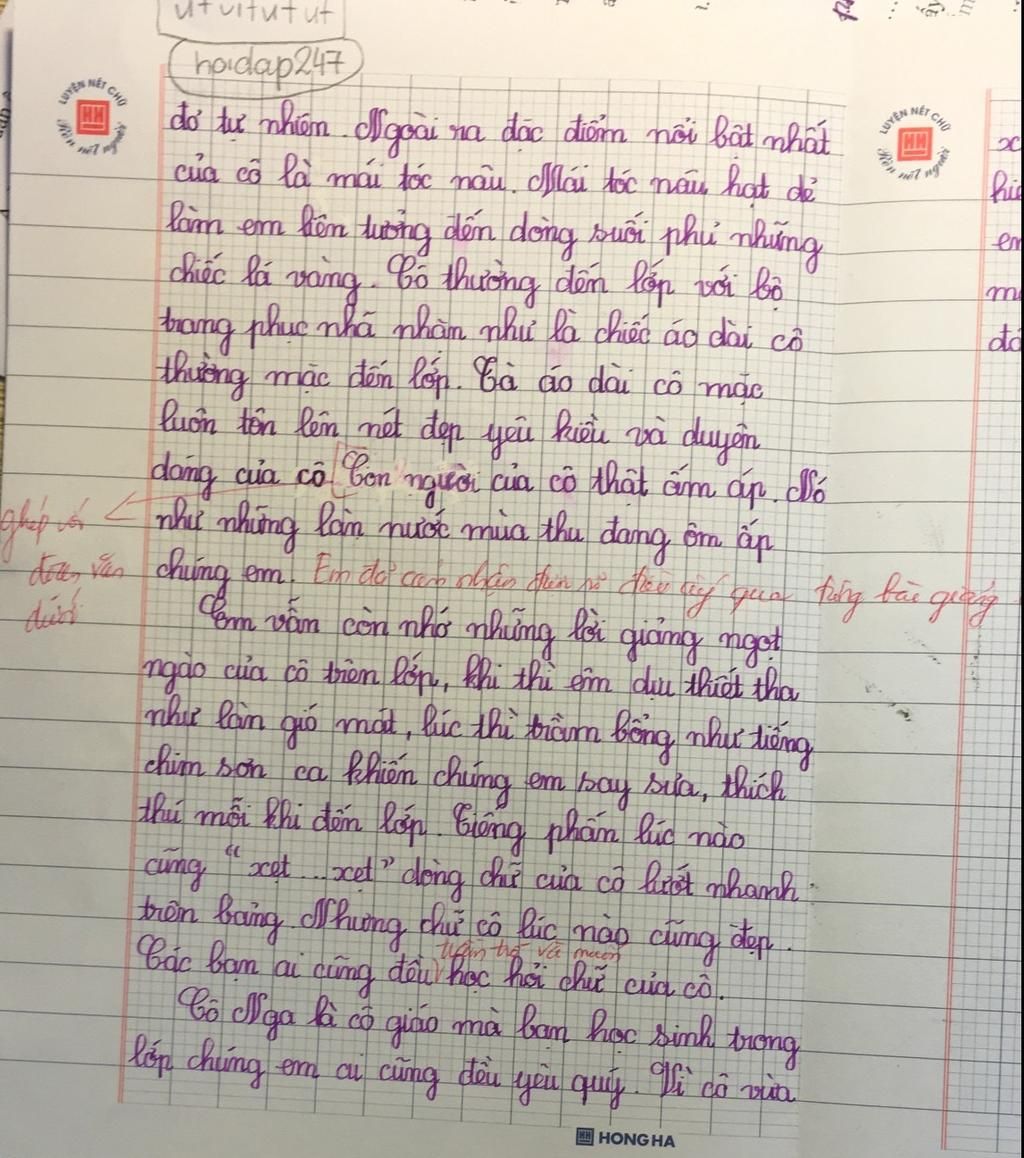 ut vt ut ut ut
hoidap247
LUYỆN NẾT CHỮ
HH
Rèn nết người
LUYỆN NẾT CHỮ
HH
Rèn nết người
đỏ tự nhiên. Ngoài ra đặc điểm nổi bật nhất
của cô là mái tóc nâu. Mái tóc nâu hạt dẻ
làm em liên tưởng đến dòng suối phủ những
chiếc lá vàng. Cô thường đến lớp với bộ
trang phục nhã nhặn như là chiếc áo dài cô
thường mặc đến lớp. Tà áo dài cô mặc
luôn tôn lên nét đẹp yêu kiều và duyên
dáng của cô. Con người của cô thật ấm áp. Nó
như những làn nước mùa thu đang ôm ấp
ghép với
đoạn văn
dưới
chúng em. Em đã cảm nhận được điều ấy qua từng bài giảng
Em vẫn còn nhớ những lời giảng ngọt
ngào của cô trên lớp, khi thì êm dịu thiết tha
như làn gió mát, lúc thì trầm bổng như tiếng
chim sơn ca khiến chúng em say sưa, thích
thú mỗi khi đến lớp. Tiếng phấn lúc nào
cũng "xẹt...xẹt" dòng chữ của cô lướt nhanh
trên bảng. Nhưng chữ cô lúc nào cũng đẹp.
và muốn
Các bạn ai cũng đều học hỏi chữ của cô.
Cô Nga là cô giáo mà bạn học sinh trong
lớp chúng em ai cũng đều yêu quý. Vì cô vừa
HH HONG HA